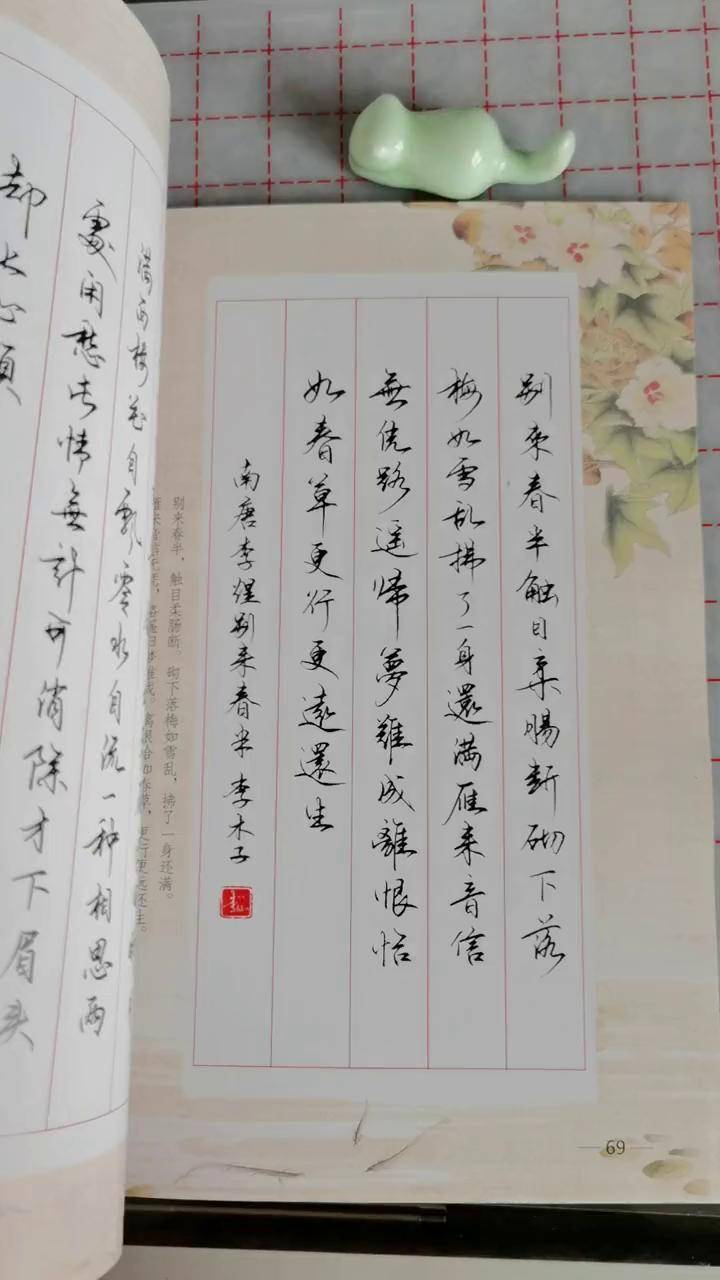 别来春半触目柔腸断砌下落
梅如雪乱拂了一身還满雁来音信
無凭路遥歸夢難成離恨恰
如春草更行更遠還生
南唐李煜别来春半 李木子
别来春半，触目柔肠断。砌下落梅如雪乱，拂了一身还满。
雁来音信无凭，路遥归梦难成。离恨恰如春草，更行更远还生。
69
满西楼花自飘零水自流一种相思两
處闲愁此情無計可消除才下眉头
却上心頭